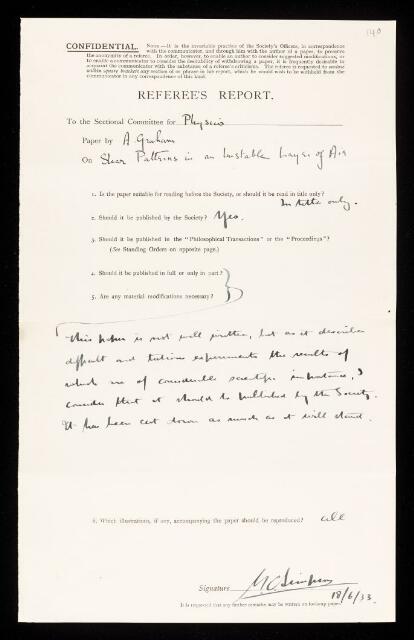 140
CONFIDENTIAL. NOTE.—It is the invariable practice of the Society's Officers, in correspondence
with the communicator, and through him with the author of a paper, to preserve
the anonymity of a referee. In order, however, to enable an author to consider suggested modifications, or
to enable a communicator to consider the desirability of withdrawing a paper, it is frequently desirable to
acquaint the communicator with the substance of a referee's criticisms. The referee is requested to enclose
within square brackets any section of or phrase in his report, which he would wish to be withheld from the
communicator in any correspondence of this kind.
REFEREE'S REPORT.
To the Sectional Committee for Physics
Paper by A Graham
On Shear Patterns in an Unstable Layer of Air
1. Is the paper suitable for reading before the Society, or should it be read in title only?
In title only.
2. Should it be published by the Society? Yes.
3. Should it be published in the "Philosophical Transactions" or the "Proceedings"?
(See Standing Orders on opposite page.)
4. Should it be published in full or only in part?
5. Are any material modifications necessary?
This paper is not well written, but as it describes
difficult and tedious experiments the results of
which are of considerable scientific importance, I
consider that it should be published by the Society.
It has been cut down as much as it will stand.
6. Which illustrations, if any, accompanying the paper should be reproduced? all
Signature G.C. Simpson
18/6/33.
It is requested that any further remarks may be written on foolscap paper.